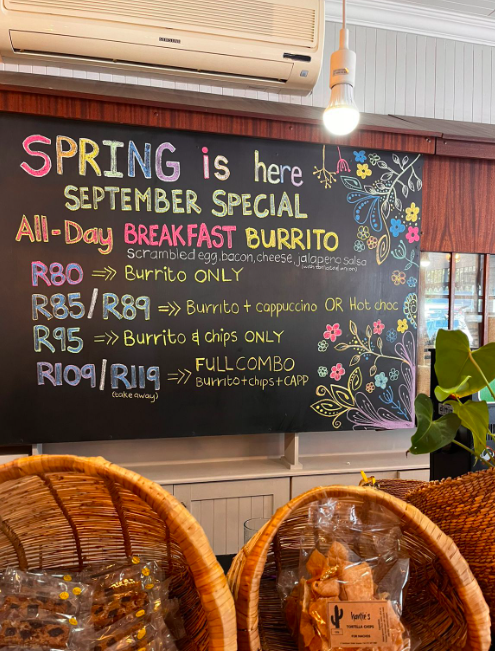 SPRING is here
SEPTEMBER SPECIAL
All-Day BREAKFAST BURRITO
scrambled egg, bacon, cheese, jalapeno salsa
R80 =>> Burrito ONLY
R85/R89 =>> Burrito + cappuccino OR Hot choc
R95 =>> Burrito & chips ONLY
R109/R119 =>> FULL COMBO
(take away)
Burrito+chips+CAPP
TORTILLA CHIPS
FOR NACHOS